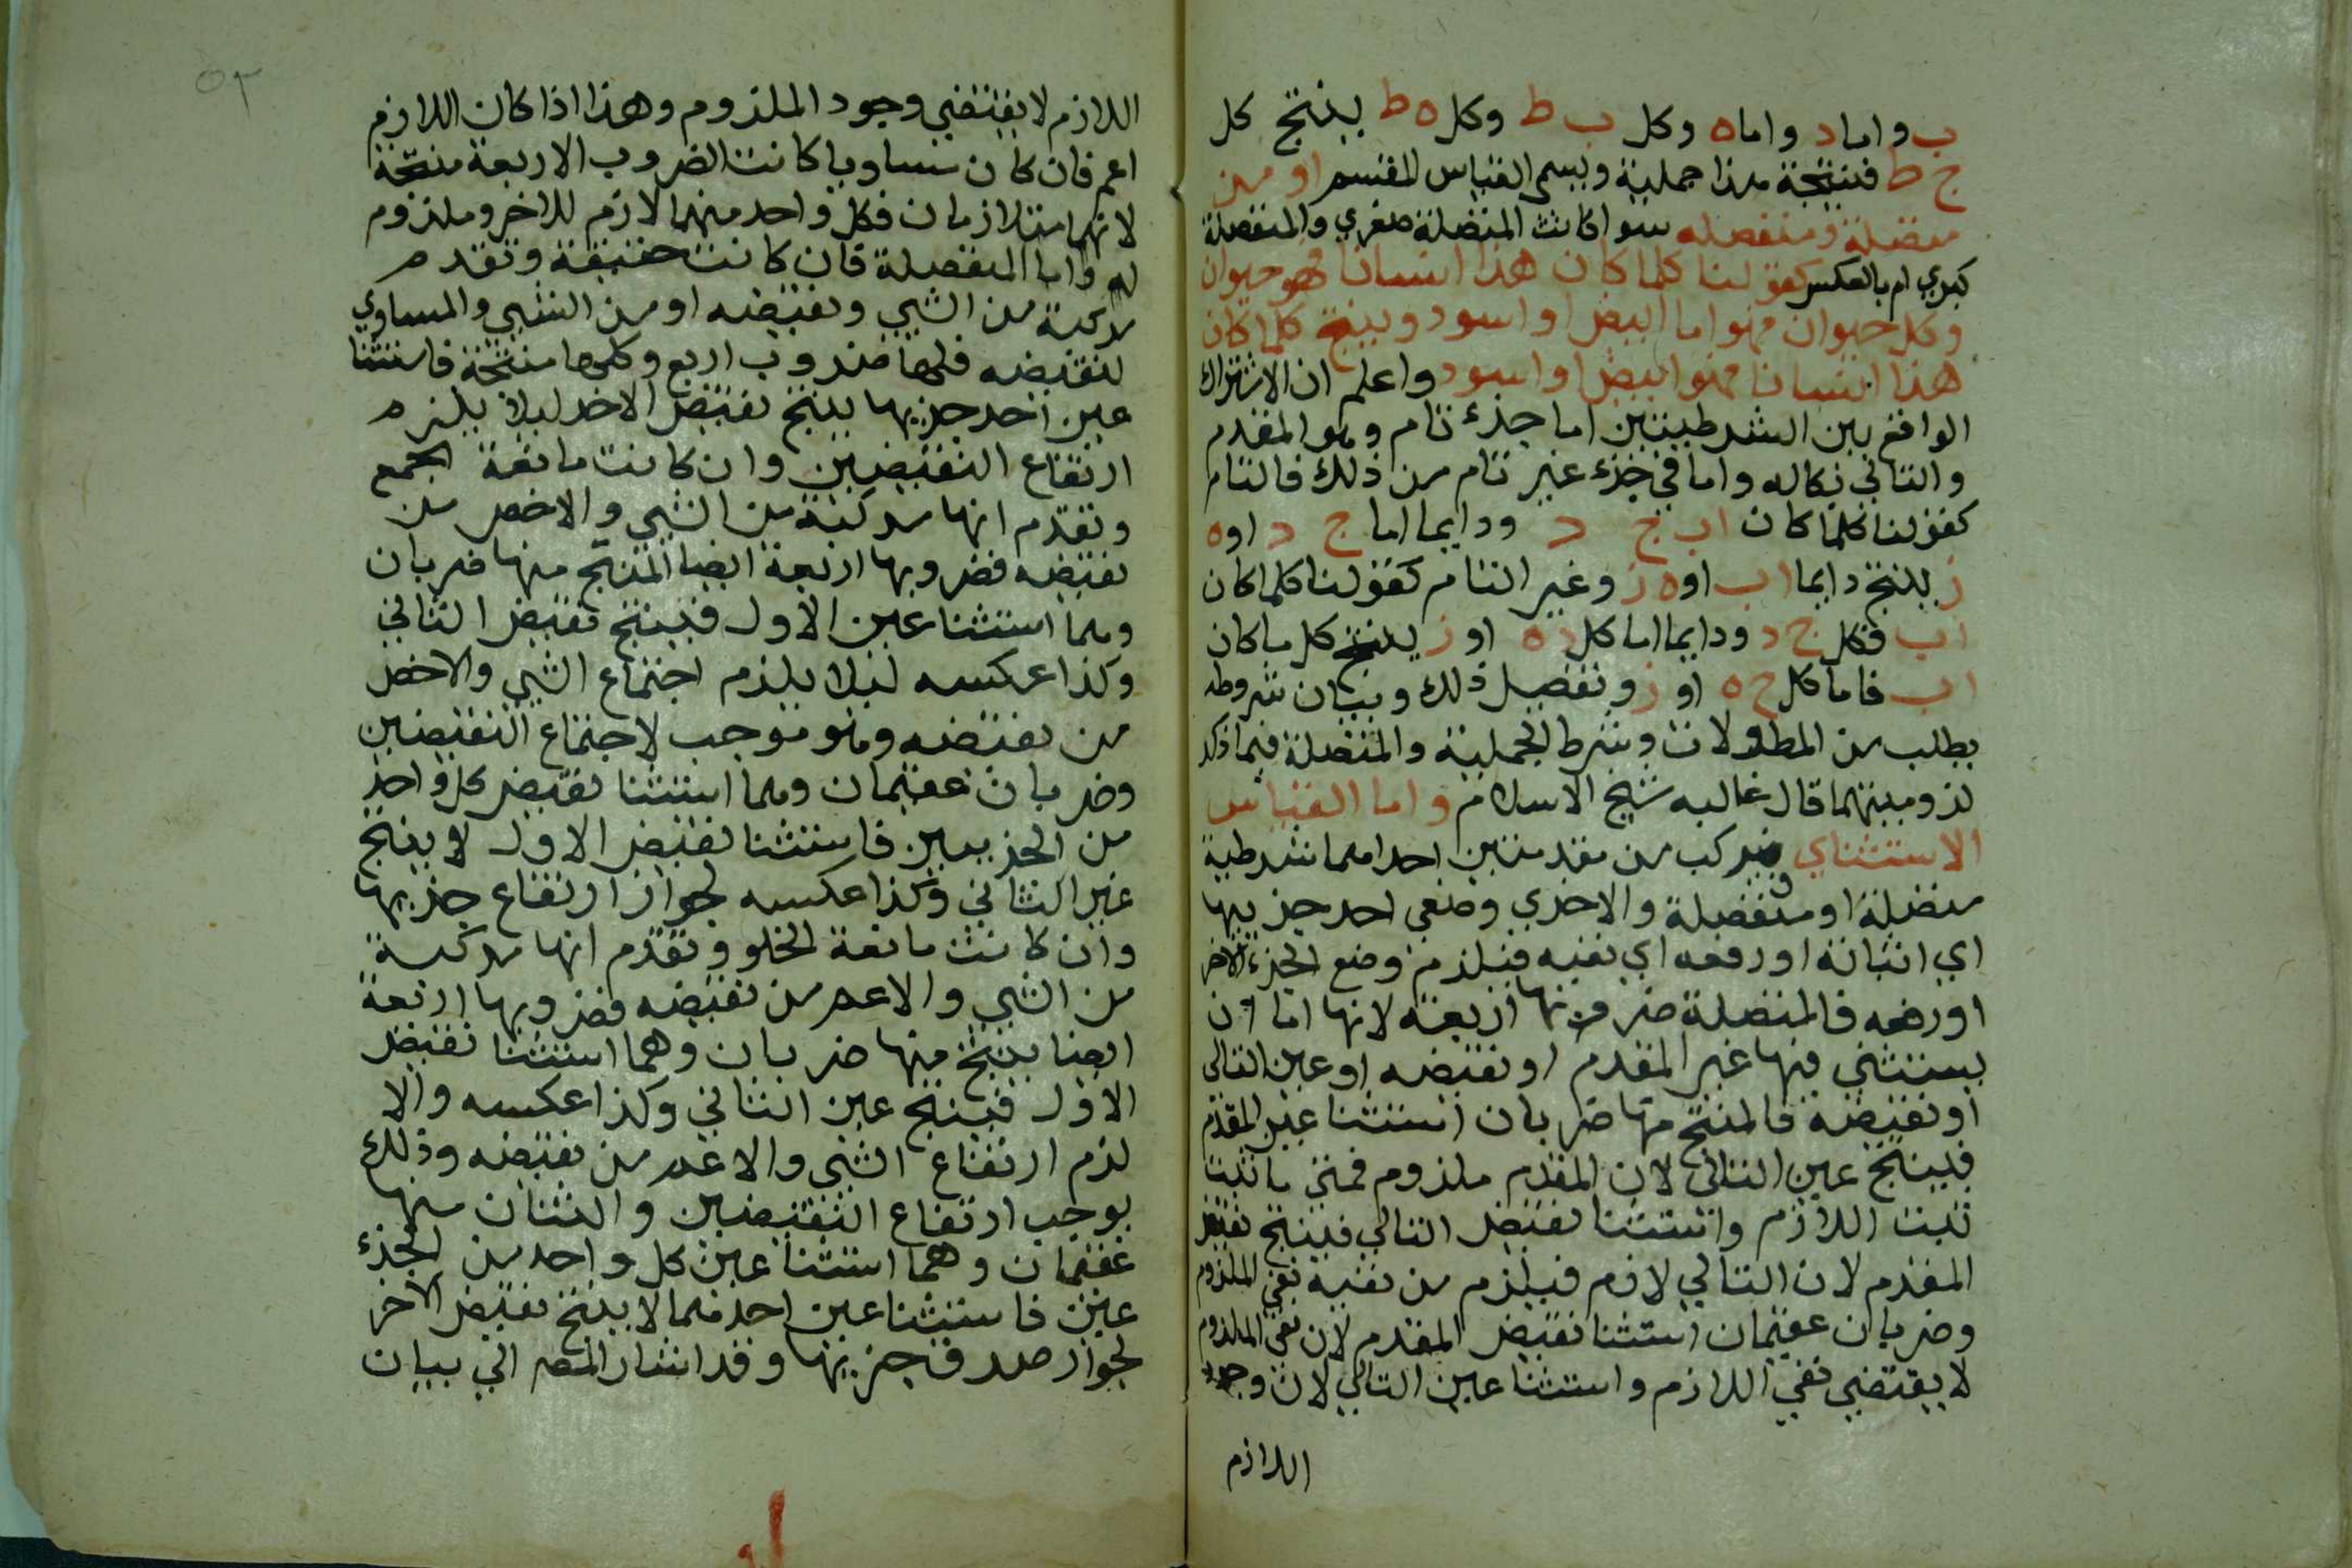 ب واما د واما ه وكل ب ط وكل ه ط ينتج كل
ج ط فنتيجة هذا حملية ويسمى القياس المقسم او من
متصلة ومنفصله سوا كانت المتصلة صغري والمنفصلة
كبري ام بالعكس كقولنا كلما كان هذا انسانا فهو حيوان
وكل حيوان فهو اما ابيض او اسود وينتج كلما كان
هذا انسانا فهو ابيض او اسود واعلم ان الاشتراك
الواقع بين الشرطيتين اما جزء تام وهو المقدم
والتالي بكاله واما في جزء غير تام من ذلك فالتام
كقولنا كلما كان اب ج د ودايما اما ج د او ه
ز ينتج دايما اب او ه ز وغير التام كقولنا كلما كان
اب فكل ج د ودايما اما كل د ه او ز ينتج كل ما كان
اب فاما كل ج ه او ز وتفصيل ذلك وبيان شروطه
يطلب من المطولات وشرط الحملية والمتصلة فيما ذكر
لزوميتهما قال غالبه شيخ الاسلام واما القياس
الاستثناي فيركب من مقدمتين احداهما شرطية
متصلة او منفصلة والاخري وضع احد جزييها
اي اثباته او رفعه اي نفيه فيلزم وضع الجزء الاخر
او رفعه فالمتصلة ضروبها اربعة لانها اما ان
يستثني فيها غير المقدم او نقيضه او عين التالي
او نقيضه فالمنتج منها ضربان استثنا عين المقدم
فينتج عين التالي لان المقدم ملزوم فمتى ما ثبت
ثبت اللازم واستثنا نقيض التالي فينتج نقيض
المقدم لان التالي لازم فيلزم من نفيه نفي الملزوم
وضربان عقيمان استثنا نقيض المقدم لان نفي الملزوم
لا يقتضي نفي اللازم واستثنا عين التالي لان وجود
اللازم
٥٣
اللازم لا يقتضي وجود الملزوم وهذا اذا كان اللازم
اعم فان كان مساويا كانت الضروب الاربعة منتجة
لانهما متلازمان فكل واحد منهما لازم للاخر وملزوم
له واما المنفصلة فان كانت حقيقة وتقدم
مركبة من الشي ونقيضه او من الشي والمساوي
لنقيضه فلها ضروب اربع وكلها منتجة فاستثنا
عين احد جزييها ينتج نقيض الاخر ليلا يلزم
ارتفاع النقيضين وان كانت مانعة الجمع
وتقدم انها مركبة من الشي والاخص من
نقيضه فضروبها اربعة ايضا المنتج منها ضربان
وهما استثنا عين الاول فينتج نقيض الثاني
وكذا عكسه ليلا يلزم اجتماع الشي والاخص
من نقيضه وهو موجب لاجتماع النقيضين
وضربان عقيمان وهما استثنا نقيض كل واحد
من الجزيين فاستثنا نقيض الاول لا ينتج
غير الثاني وكذا عكسه لجواز ارتفاع جزييها
وان كانت مانعة الخلو وتقدم انها مركبة
من الشي والاعم من نقيضه فضروبها اربعة
ايضا ينتج منها ضربان وهما استثنا نقيض
الاول فينتج عين الثاني وكذا عكسه والا
لزم ارتفاع الشي والاعم من نقيضه وذلك
يوجب ارتفاع النقيضين واثنان منها
عقيمان وهما استثنا عين كل واحد من الجزء
عين فاستثنا عين احدهما لا ينتج نقيض الاخر
لجواز صدق جزييها وقد اشار المص الي بيان